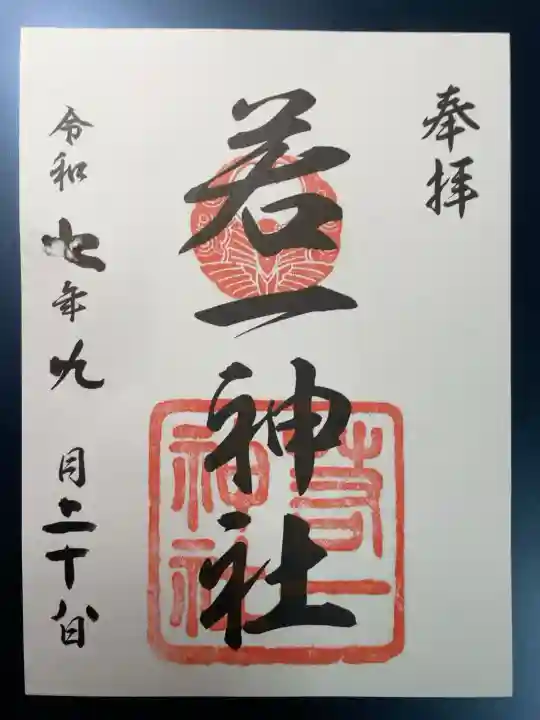 奉拝
若一神社
若一神社
令和七年九月二十八日